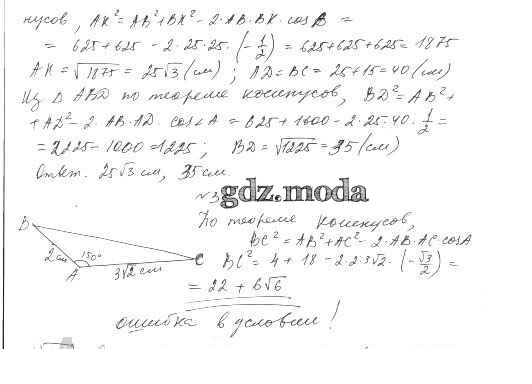 нусов, AK² = AB² + BK² - 2·AB·BK·cosB =
= 625 + 625 - 2·25·25·(-1/2) = 625+625+625 = 1875
AK = √1875 = 25√3 (см); AD = BC = 25 + 15 = 40 (см)
Из Δ ABD по теореме косинусов, BD² = AB² +
+ AD² - 2·AB·AD·cos∠A = 625 + 1600 - 2·25·40·1/2 =
= 2225 - 1000 = 1225; BD = √1225 = 35 (см)
Ответ. 25√3 см, 35 см.
№3
gdz.moda
По теореме косинусов,
BC² = AB² + AC² - 2·AB·AC·cosA
BC² = 4 + 18 - 2·2·3√2·(-√3/2) =
= 22 + 6√6
B
2 см
150°
A
3√2 см
C
ошибка в условии!